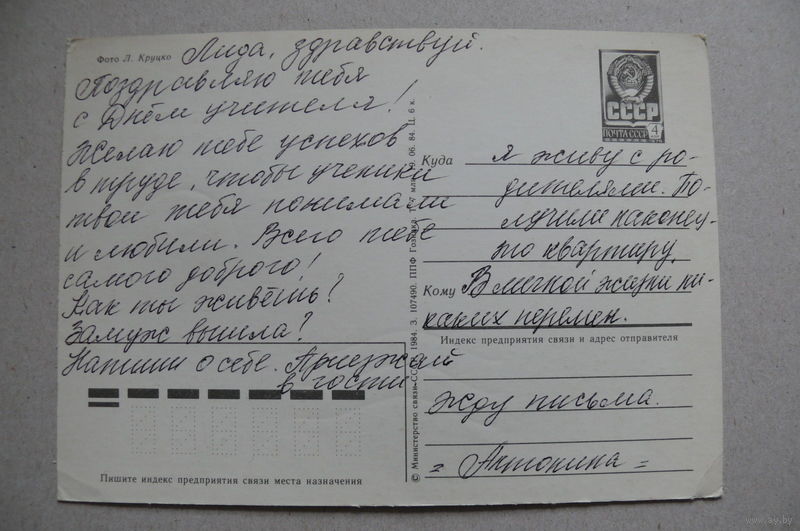 Фото Л. Круцко
Лида, здравствуй.
Поздравляю тебя
с Днём учителя!
Желаю тебе успехов
в труде, чтобы ученики
твои тебя понимали
и любили. Всего тебе
самого доброго!
Как ты живёшь?
Замуж вышла?
Напиши о себе. Приезжай
в гости
Пишите индекс предприятия связи места назначения
© Министерство связи СССР, 1984. З. 107490. ППФ Гознака. 06. 84. Ц. 6 к.
СССР
ПОЧТА СССР 4
Куда я живу с ро-
дителями. По-
лучили наконец-
то квартиру.
Кому В личной жизни ни-
каких перемен.
Индекс предприятия связи и адрес отправителя
Жду письма.
= Антонина =
www.ay.by